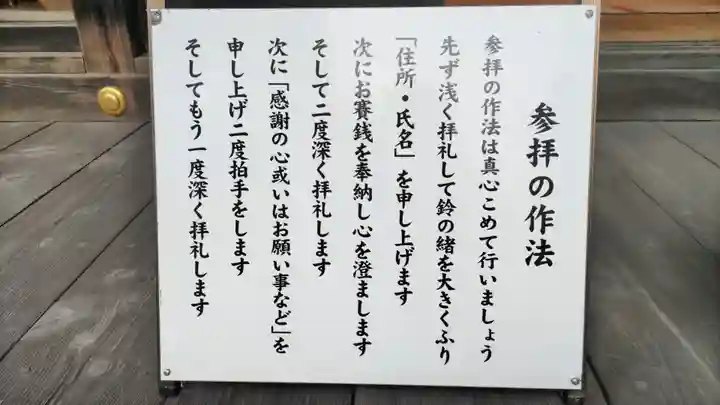 参拝の作法
参拝の作法は真心こめて行いましょう
先ず浅く拝礼して鈴の緒を大きくふり
「住所・氏名」を申し上げます
次にお賽銭を奉納し心を澄まします
そして二度深く拝礼します
次に「感謝の心或いはお願い事など」を
申し上げ二度拍手をします
そしてもう一度深く拝礼します